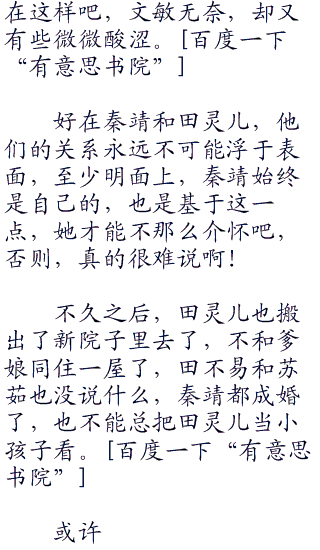 在这样吧，文敏无奈，却又
有些微微酸涩。[百度一下
“有意思书院”]
好在秦靖和田灵儿，他
们的关系永远不可能浮于表
面，至少明面上，秦靖始终
是自己的，也是基于这一
点，她才能不那么介怀吧，
否则，真的很难说啊！
不久之后，田灵儿也搬
出了新院子里去了，不和爹
娘同住一屋了，田不易和苏
茹也没说什么，秦靖都成婚
了，也不能总把田灵儿当小
孩子看。[百度一下“有意思
书院”]
或许